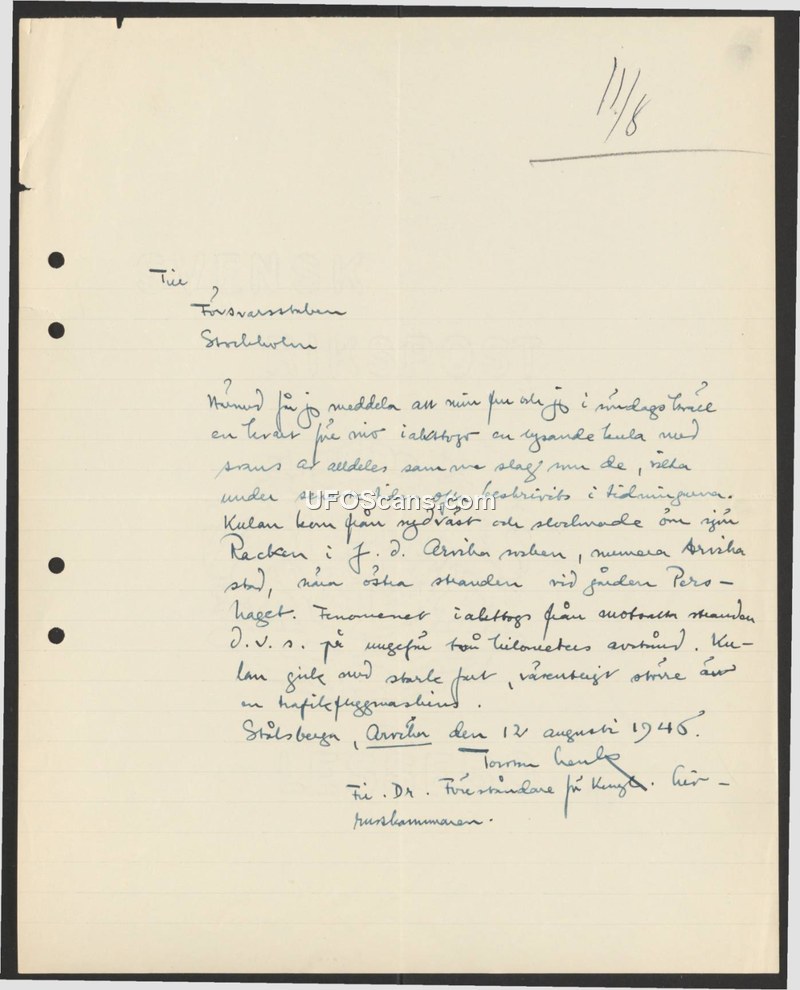 11/8
Till
Försvarsstaben
Stockholm
Härmed får jag meddela att min fru och jag i söndags kväll
en kvart före nio iakttogo en lysande kula med
svans av alldeles samma slag som de, vilka
under senaste tiden ofta beskrivits i tidningarna.
UFOScans.com
Kulan kom från sydväst och slocknade över sjön
Racken i f. d. Arvika socken, numera Arvika
stad, nära östra stranden vid gården Pers-
haget. Fenomenet iakttogs från motsatta stranden
d. v. s. på ungefär två kilometers avstånd. Ku-
lan gick med stark fart, väsentligt större än
en trafikflygmaskins.
Stålsberga, Arvika den 12 augusti 1946.
Torsten Lenk
Fil. Dr. Föreståndare för Kungl. Liv-
rustkammaren.